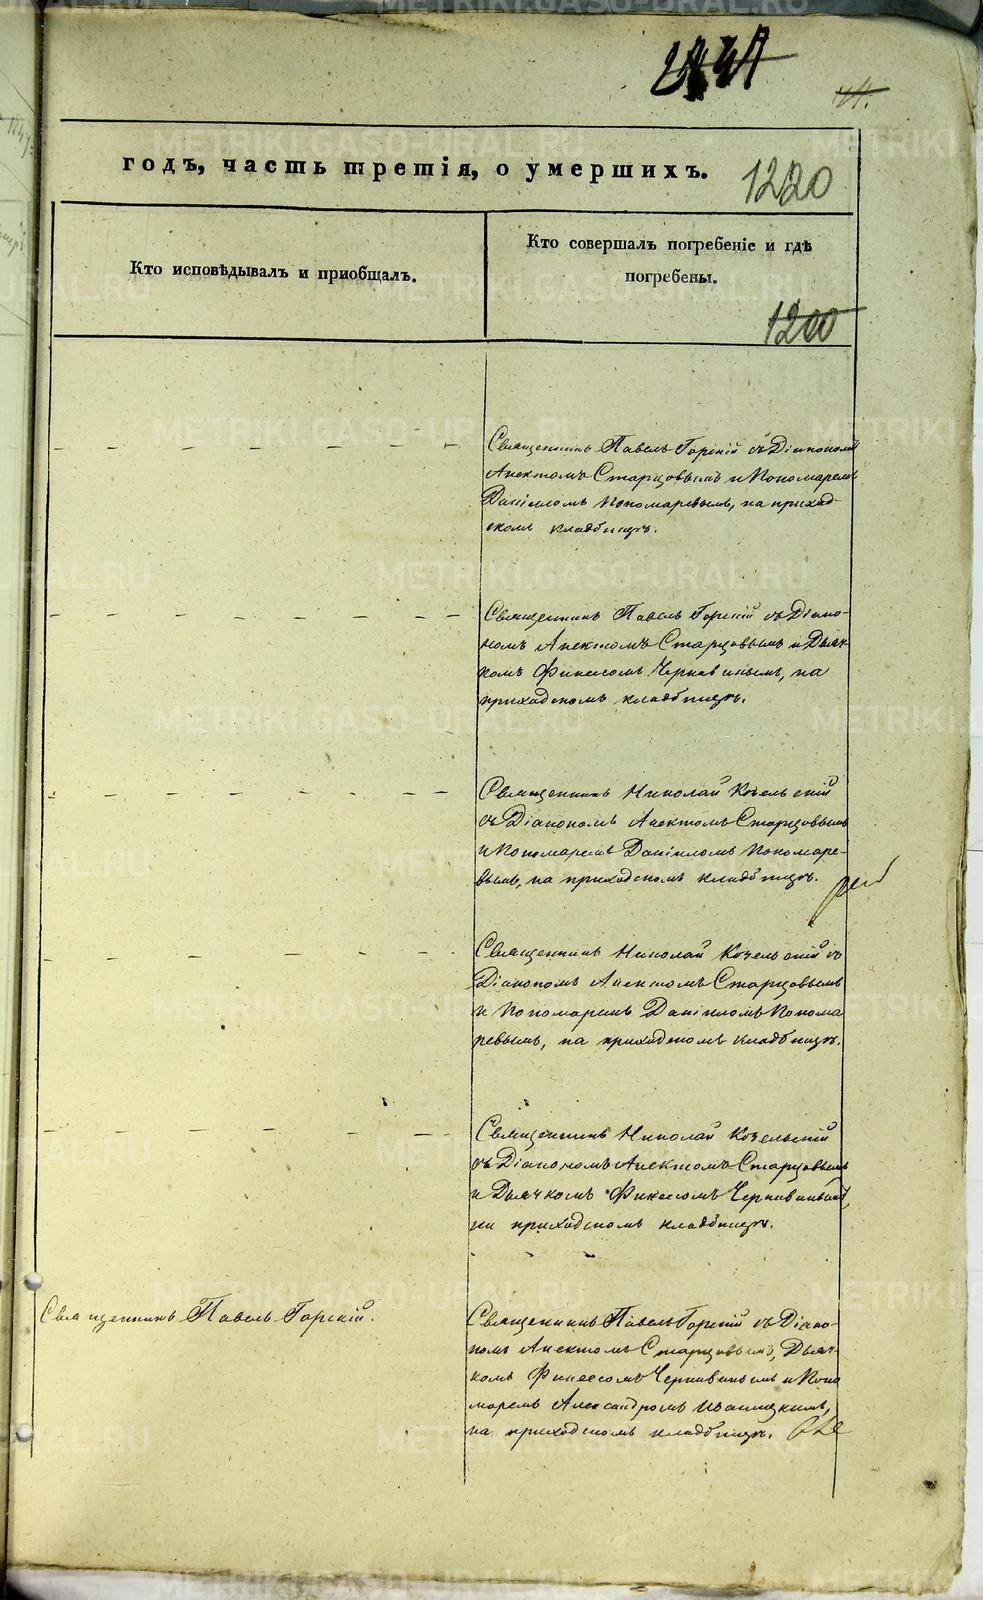 METRIKI.GASO-URAL.RU
годъ, часть третія, о умершихъ.
1220
Кто исповѣдывалъ и приобщалъ.
Кто совершалъ погребеніе и гдѣ
погребены.
1200
Священникъ Павелъ Горскій съ Діакономъ
Старцовымъ и Пономаремъ
Даніиломъ Пономаревымъ, на приход-
скомъ кладбищѣ.
Священникъ Павелъ Горскій съ Діако-
номъ Старцовымъ и Дьяч-
комъ Финеесомъ Чернавинымъ, на
приходскомъ кладбищѣ.
Священникъ Николай Козельскій
съ Діакономъ Старцовымъ
и Пономаремъ Даніиломъ Пономаре-
вымъ, на приходскомъ кладбищѣ.
Священникъ Николай Козельскій съ
Діакономъ Старцовымъ
и Пономаремъ Даніиломъ Понома
ревымъ, на приходскомъ кладбищѣ.
Священникъ Николай Козельскій
съ Діакономъ Старцовымъ
и Дьячкомъ Финеесомъ Чернавинымъ,
на приходскомъ кладбищѣ.
Священникъ Павелъ Горскій.
Священникъ Павелъ Горскій съ Діако-
номъ Старцовымъ, Дьяч-
комъ Финеесомъ Чернавинымъ и Поно
маремъ Александромъ
на приходскомъ кладбищѣ.